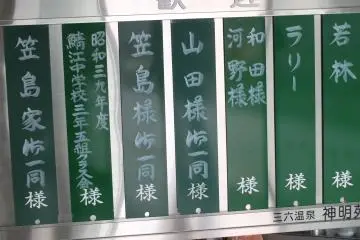 歓迎
若林
様
ラリー
様
和田様
河野様
様
山田様御一同
様
笠島様御一同
様
昭和三九年度
鯖江中学校三年五組クラス会
様
笠島家御一同
様
三六温泉 神明苑